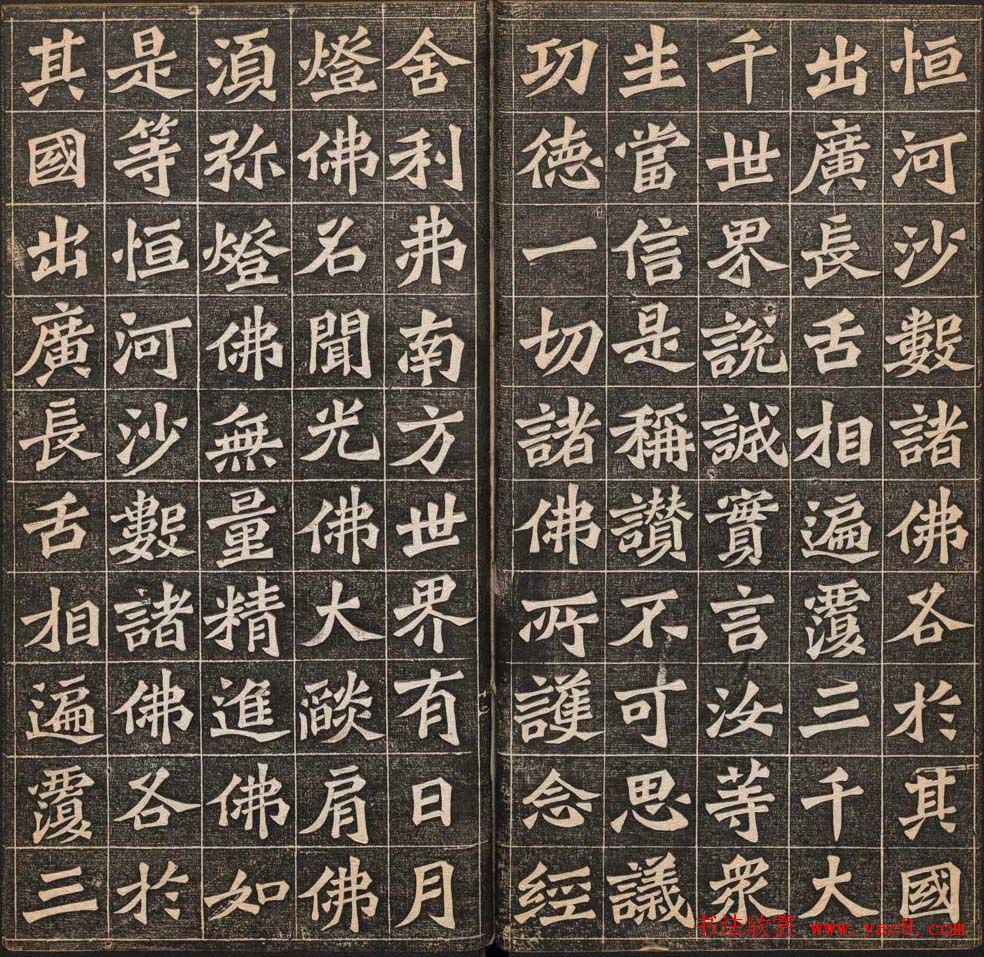 恒河沙數諸佛各於其國
出廣長舌相遍覆三千大
千世界説誠實言汝等衆
生當信是稱讃不可思議
功德一切諸佛所護念經
舍利弗南方世界有日月
燈佛名聞光佛大燄肩佛
須弥燈佛無量精進佛如
是等恒河沙數諸佛各於
其國出廣長舌相遍覆三
书法欣赏 www.yac8.com